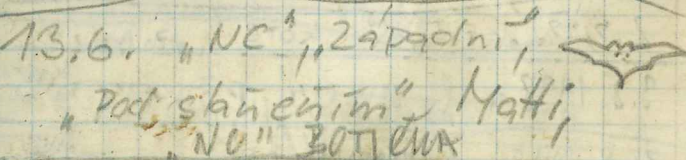 13.6. „NC", „Západní",
„Pod slunečním" Matti,
„NU" BOTIČKA